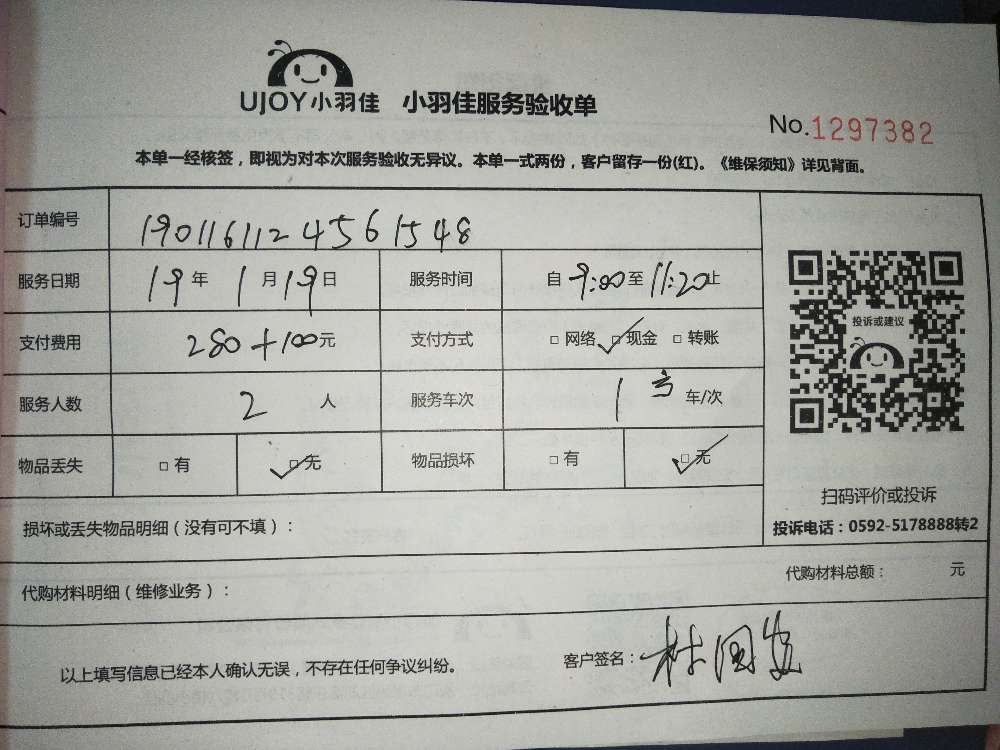 UJOY小羽佳 小羽佳服务验收单
No.1297382
本单一经核签，即视为对本次服务验收无异议。本单一式两份，客户留存一份(红)。《维保须知》详见背面。
订单编号 1901161124561548
服务日期 19年 1月19日 服务时间 自9:00至11:20止
支付费用 280+100元 支付方式 □网络 ✓□现金 □转账
服务人数 2 人 服务车次 1 车/次
物品丢失 □有 ✓□无 物品损坏 □有 ✓□无
投诉或建议
扫码评价或投诉
投诉电话：0592-5178888转2
损坏或丢失物品明细（没有可不填）：
代购材料明细（维修业务）： 代购材料总额： 元
以上填写信息已经本人确认无误，不存在任何争议纠纷。 客户签名：林国